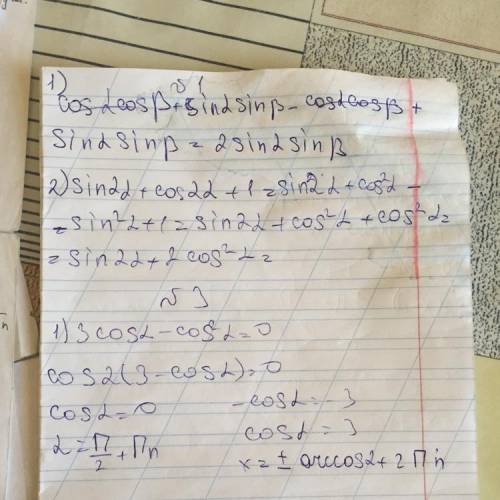 №1
1)
cosαcosβ+sinαsinβ-cosαcosβ+
sinαsinβ=2sinαsinβ
2)sin2α+cos2α+1=sin2α+cos²α-
-sin²α+1=sin2α+cos²α+cos²α=
=sin2α+2cos²α=
№3
1)3cosα-cos²α=0
cosα(3-cosα)=0
cosα=0 -cosα=-3
cosα=3
α=П/2+Пn x=±arccosα+2Пn